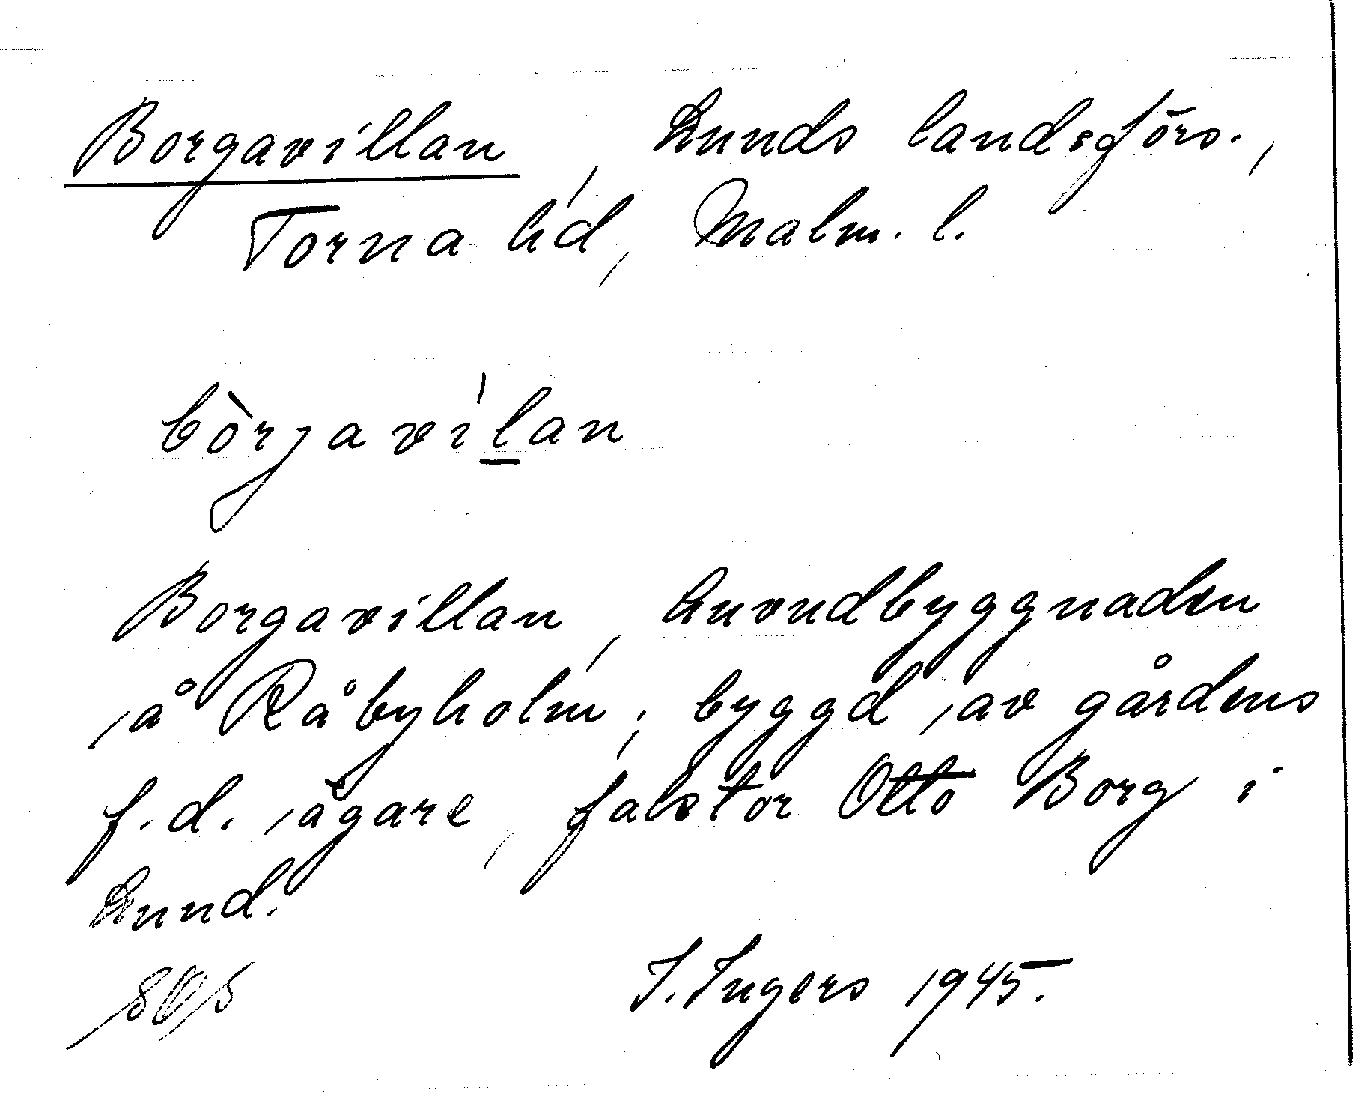 Borgavillan, Lunds landsförs.,
Torna hd, Malm. l.
bòrjavi'lan
Borgavillan, huvudbyggnaden
å Råbyholm, byggd av gårdens
f.d. ägare, faktor Otto Borg i
Lund.
I. Ingers 1945.